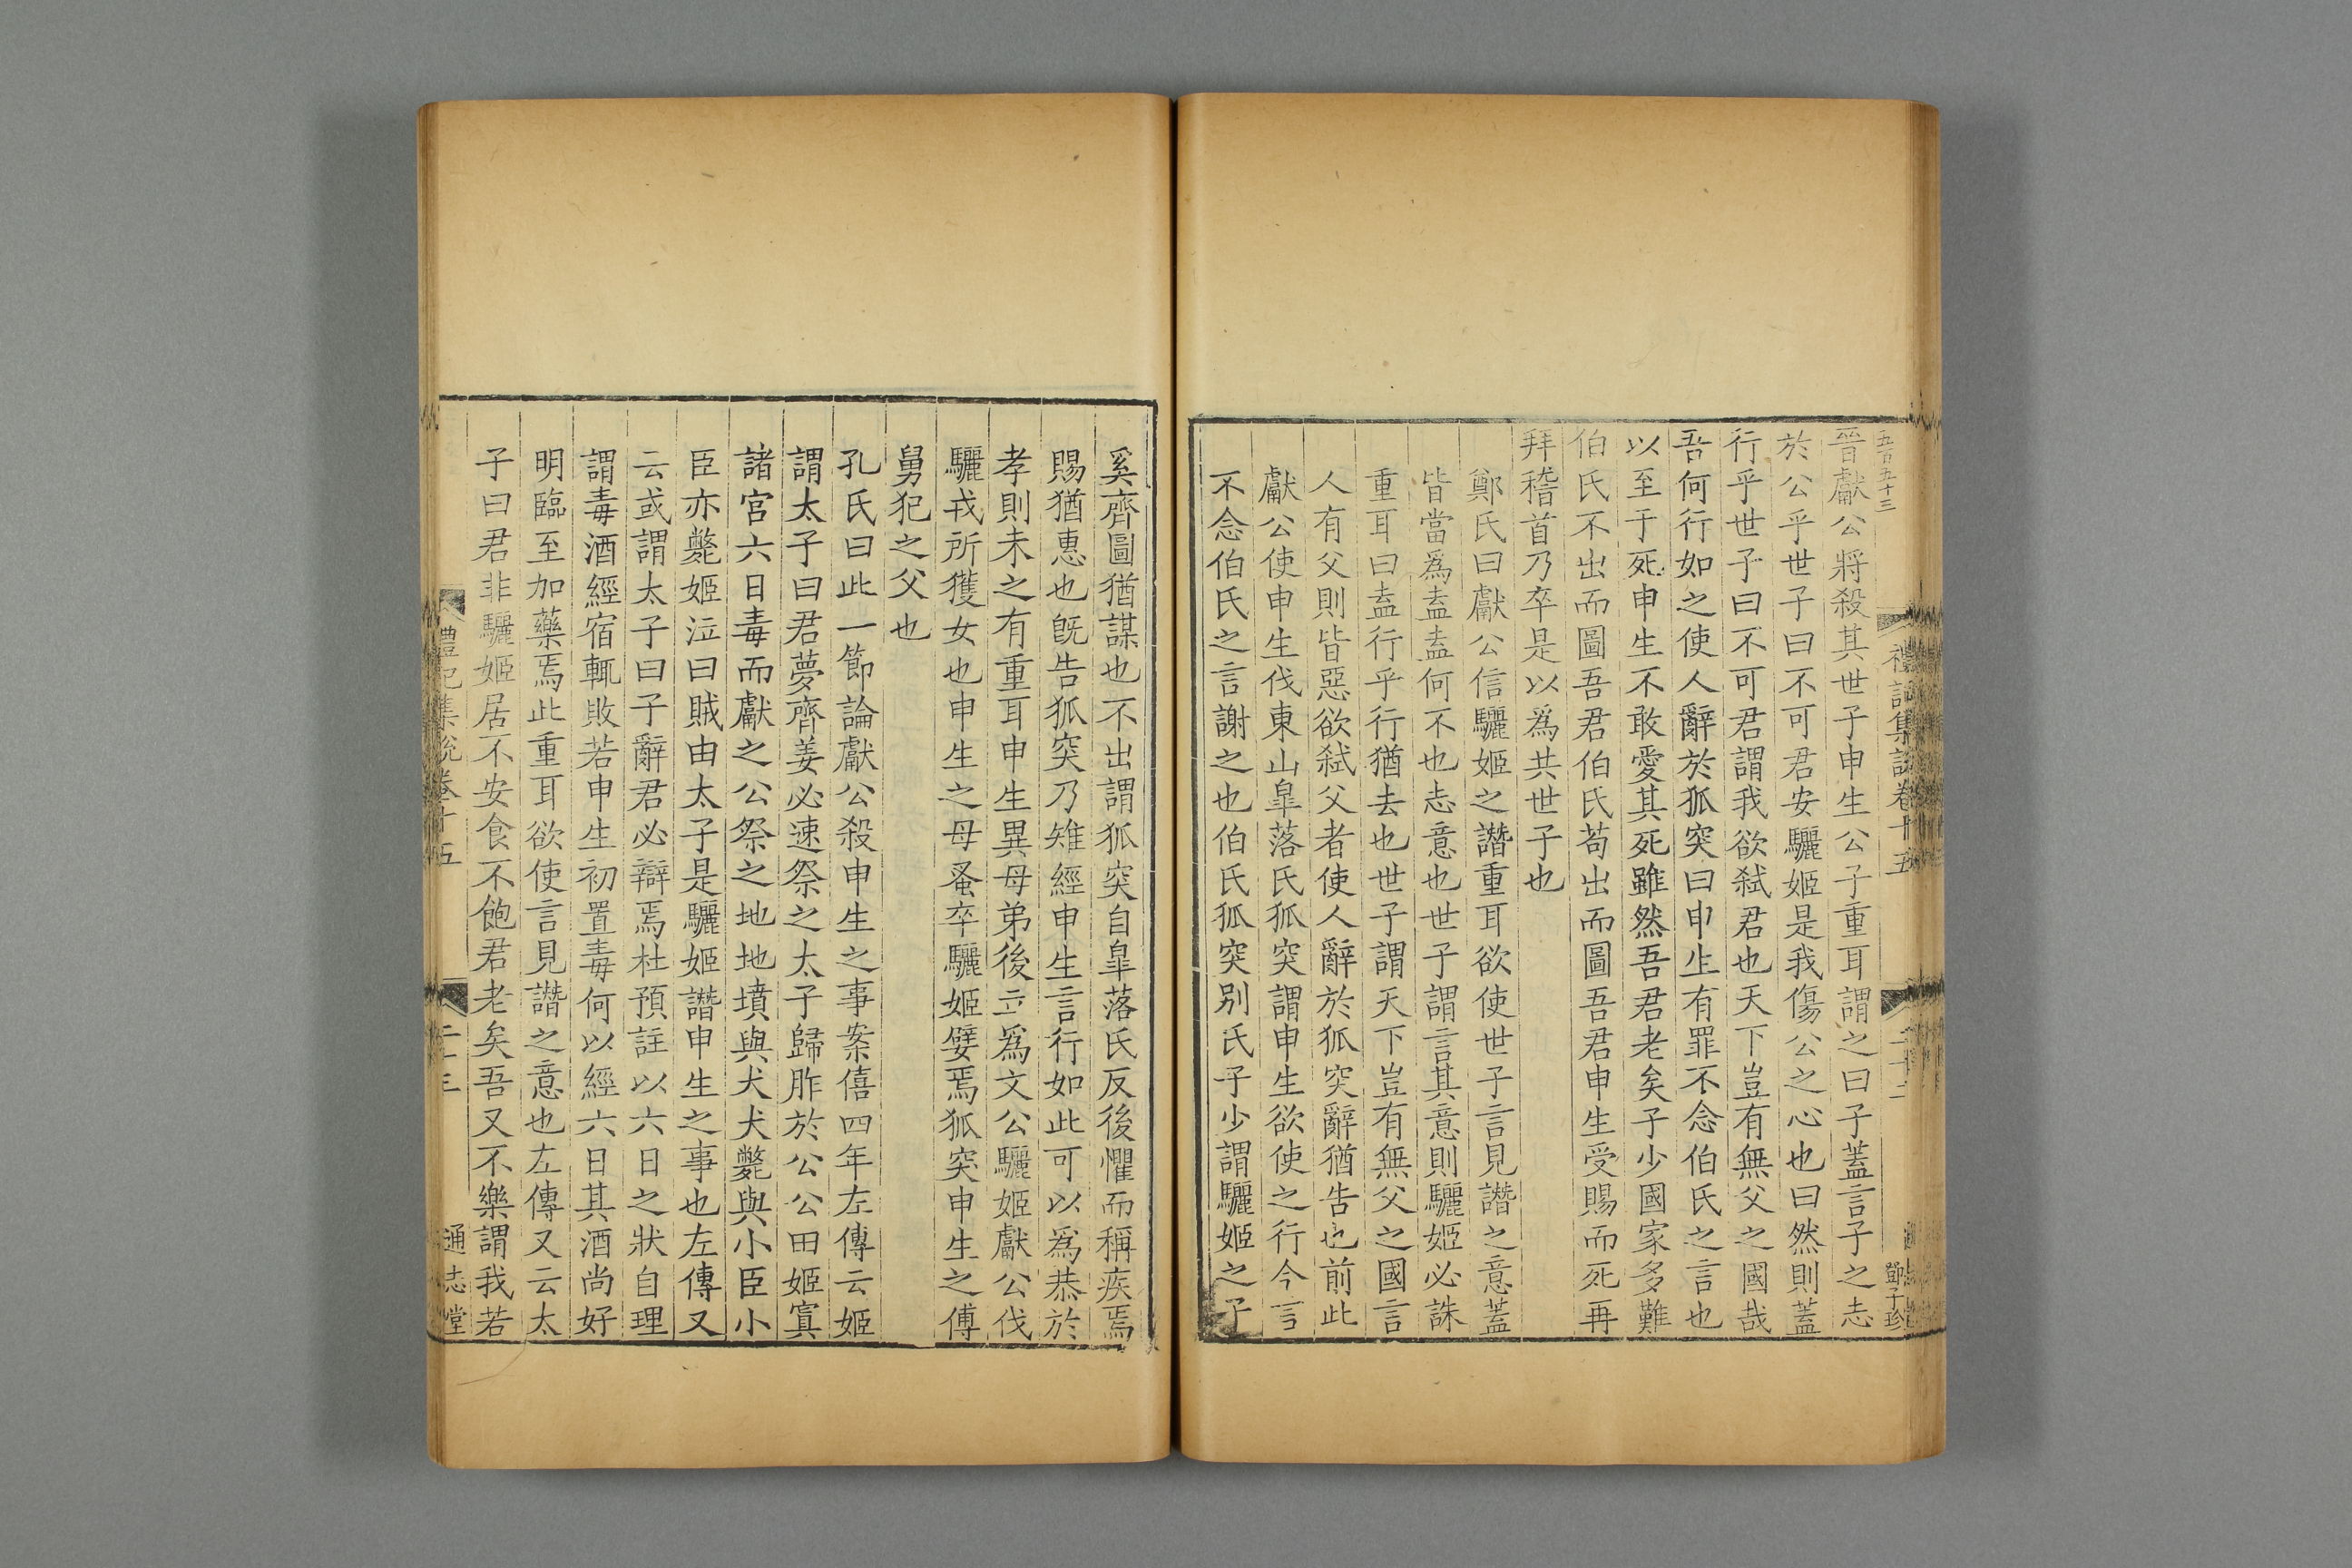 五百五十三
晉獻公將殺其世子申生公子重耳謂之曰子蓋言子之志
於公乎世子曰不可君安驪姬是我傷公之心也曰然則蓋
行乎世子曰不可君謂我欲弒君也天下豈有無父之國哉
吾何行如之使人辭於狐突曰申生有罪不念伯氏之言也
以至于死申生不敢愛其死雖然吾君老矣子少國家多難
伯氏不出而圖吾君伯氏苟出而圖吾君申生受賜而死再
拜稽首乃卒是以爲共世子也
鄭氏曰獻公信驪姬之譖重耳欲使世子言見譖之意蓋
皆當爲盍盍何不也志意也世子謂言其意則驪姬必誅
重耳曰盍行乎行猶去也世子謂天下豈有無父之國言
人有父則皆惡欲弒父者使人辭於狐突辭猶告也前此
獻公使申生伐東山皐落氏狐突謂申生欲使之行今言
不念伯氏之言謝之也伯氏狐突別氏子少謂驪姬之子
禮記集說卷十五
二十二
鄧子珍
奚齊圖猶謀也不出謂狐突自皐落氏反後懼而稱疾焉
賜猶惠也旣告狐突乃雉經申生言行如此可以爲恭於
孝則未之有重耳申生異母弟後立爲文公驪姬獻公伐
驪戎所獲女也申生之母蚤卒驪姬嬖焉狐突申生之傅
舅犯之父也
孔氏曰此一節論獻公殺申生之事案僖四年左傳云姬
謂太子曰君夢齊姜必速祭之太子歸胙於公公田姬寘
諸宮六日毒而獻之公祭之地地墳與犬犬斃與小臣小
臣亦斃姬泣曰賊由太子是驪姬譖申生之事也左傳又
云或謂太子曰子辭君必辯焉杜預註以六日之狀自理
謂毒酒經宿輒敗若申生初置毒何以經六日其酒尚好
明臨至加藥焉此重耳欲使言見譖之意也左傳又云太
子曰君非驪姬居不安食不飽君老矣吾又不樂謂我若
禮記集說卷十五
二十三
通志堂